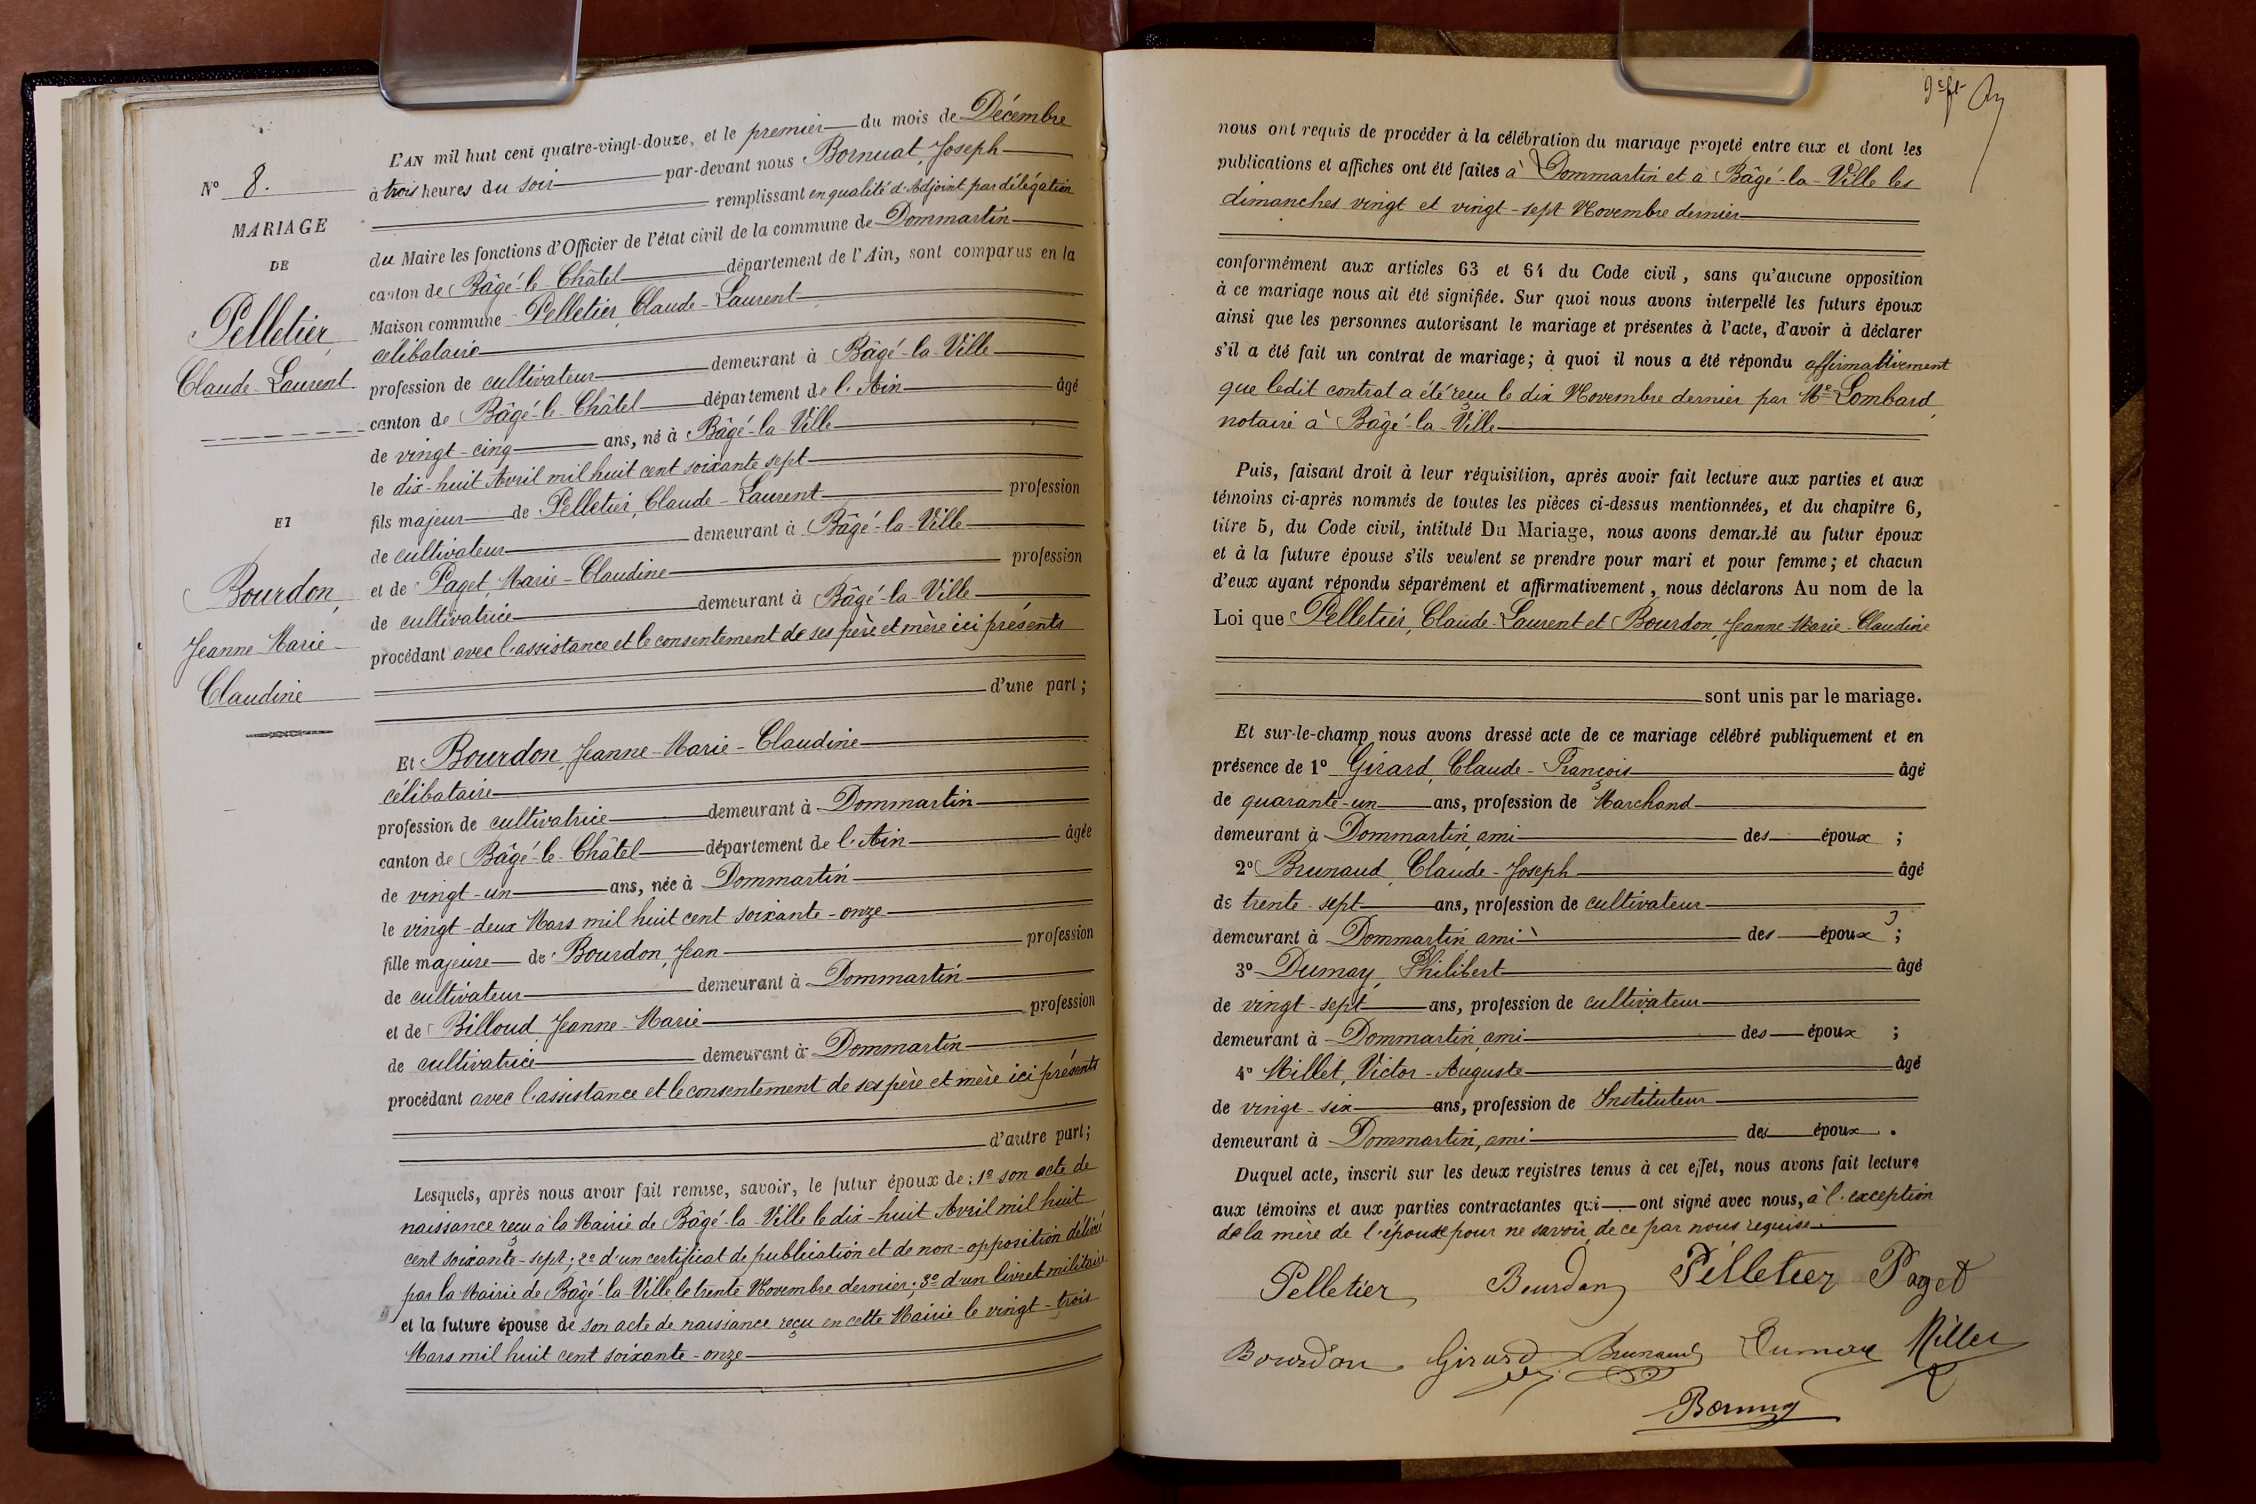 N° 8.
MARIAGE
DE
Pelletier,
Claude-Laurent
ET
Bourdon,
Jeanne-Marie-
Claudine
L'AN mil huit cent quatre-vingt-douze, et le premier du mois de Décembre
à trois heures du soir par-devant nous Bornuat, Joseph
remplissant en qualité d'Adjoint par délégation
du Maire les fonctions d'Officier de l'état civil de la commune de Dommartin
canton de Bâgé-le-Châtel département de l'Ain, sont comparus en la
Maison commune Pelletier, Claude-Laurent
célibataire
profession de cultivateur demeurant à Bâgé-la-Ville
canton de Bâgé-le-Châtel département de l'Ain âgé
de vingt-cinq ans, né à Bâgé-la-Ville
le dix-huit Avril mil huit cent soixante sept
fils majeur de Pelletier, Claude-Laurent profession
de cultivateur demeurant à Bâgé-la-Ville
et de Paget, Marie-Claudine profession
de cultivatrice demeurant à Bâgé-la-Ville
procédant avec l'assistance et le consentement de ses père et mère ici présents
d'une part;
Et Bourdon, Jeanne-Marie-Claudine
célibataire
profession de cultivatrice demeurant à Dommartin
canton de Bâgé-le-Châtel département de l'Ain âgée
de vingt-un ans, née à Dommartin
le vingt-deux Mars mil huit cent soixante-onze
fille majeure de Bourdon, Jean profession
de cultivateur demeurant à Dommartin
et de Billoud, Jeanne-Marie profession
de cultivatrice demeurant à Dommartin
procédant avec l'assistance et le consentement de ses père et mère ici présents
d'autre part;
Lesquels, après nous avoir fait remise, savoir, le futur époux de: 1° son acte de
naissance reçu à la Mairie de Bâgé-la-Ville le dix-huit Avril mil huit
cent soixante-sept; 2° d'un certificat de publication et de non-opposition délivré
par la Mairie de Bâgé-la-Ville le trente Novembre dernier; 3° d'un livret militaire
et la future épouse de son acte de naissance reçu en cette Mairie le vingt-trois
Mars mil huit cent soixante-onze
nous ont requis de procéder à la célébration du mariage projeté entre eux et dont les
publications et affiches ont été faites à Dommartin et à Bâgé-la-Ville les
dimanches vingt et vingt-sept Novembre dernier
conformément aux articles 63 et 64 du Code civil, sans qu'aucune opposition
à ce mariage nous ait été signifiée. Sur quoi nous avons interpellé les futurs époux
ainsi que les personnes autorisant le mariage et présentes à l'acte, d'avoir à déclarer
s'il a été fait un contrat de mariage; à quoi il nous a été répondu affirmativement
que ledit contrat a été reçu le dix Novembre dernier par Me Lombard,
notaire à Bâgé-la-Ville
Puis, faisant droit à leur réquisition, après avoir fait lecture aux parties et aux
témoins ci-après nommés de toutes les pièces ci-dessus mentionnées, et du chapitre 6,
titre 5, du Code civil, intitulé Du Mariage, nous avons demandé au futur époux
et à la future épouse s'ils veulent se prendre pour mari et pour femme; et chacun
d'eux ayant répondu séparément et affirmativement, nous déclarons Au nom de la
Loi que Pelletier, Claude-Laurent et Bourdon, Jeanne-Marie-Claudine
sont unis par le mariage.
Et sur-le-champ nous avons dressé acte de ce mariage célébré publiquement et en
présence de 1° Girard, Claude-François âgé
de quarante-un ans, profession de Marchand
demeurant à Dommartin, ami des époux ;
2° Brunaud, Claude-Joseph âgé
de trente-sept ans, profession de cultivateur
demeurant à Dommartin ami des époux ;
3° Dumay, Philibert âgé
de vingt-sept ans, profession de cultivateur
demeurant à Dommartin, ami des époux ;
4° Millet, Victor-Auguste âgé
de vingt-six ans, profession de Instituteur
demeurant à Dommartin, ami des époux .
Duquel acte, inscrit sur les deux registres tenus à cet effet, nous avons fait lecture
aux témoins et aux parties contractantes qui ont signé avec nous, à l'exception
de la mère de l'épouse pour ne savoir, de ce par nous requise.
Pelletier Bourdon Pelletier Paget
Bourdon Girard Brunaud Dumay Millet